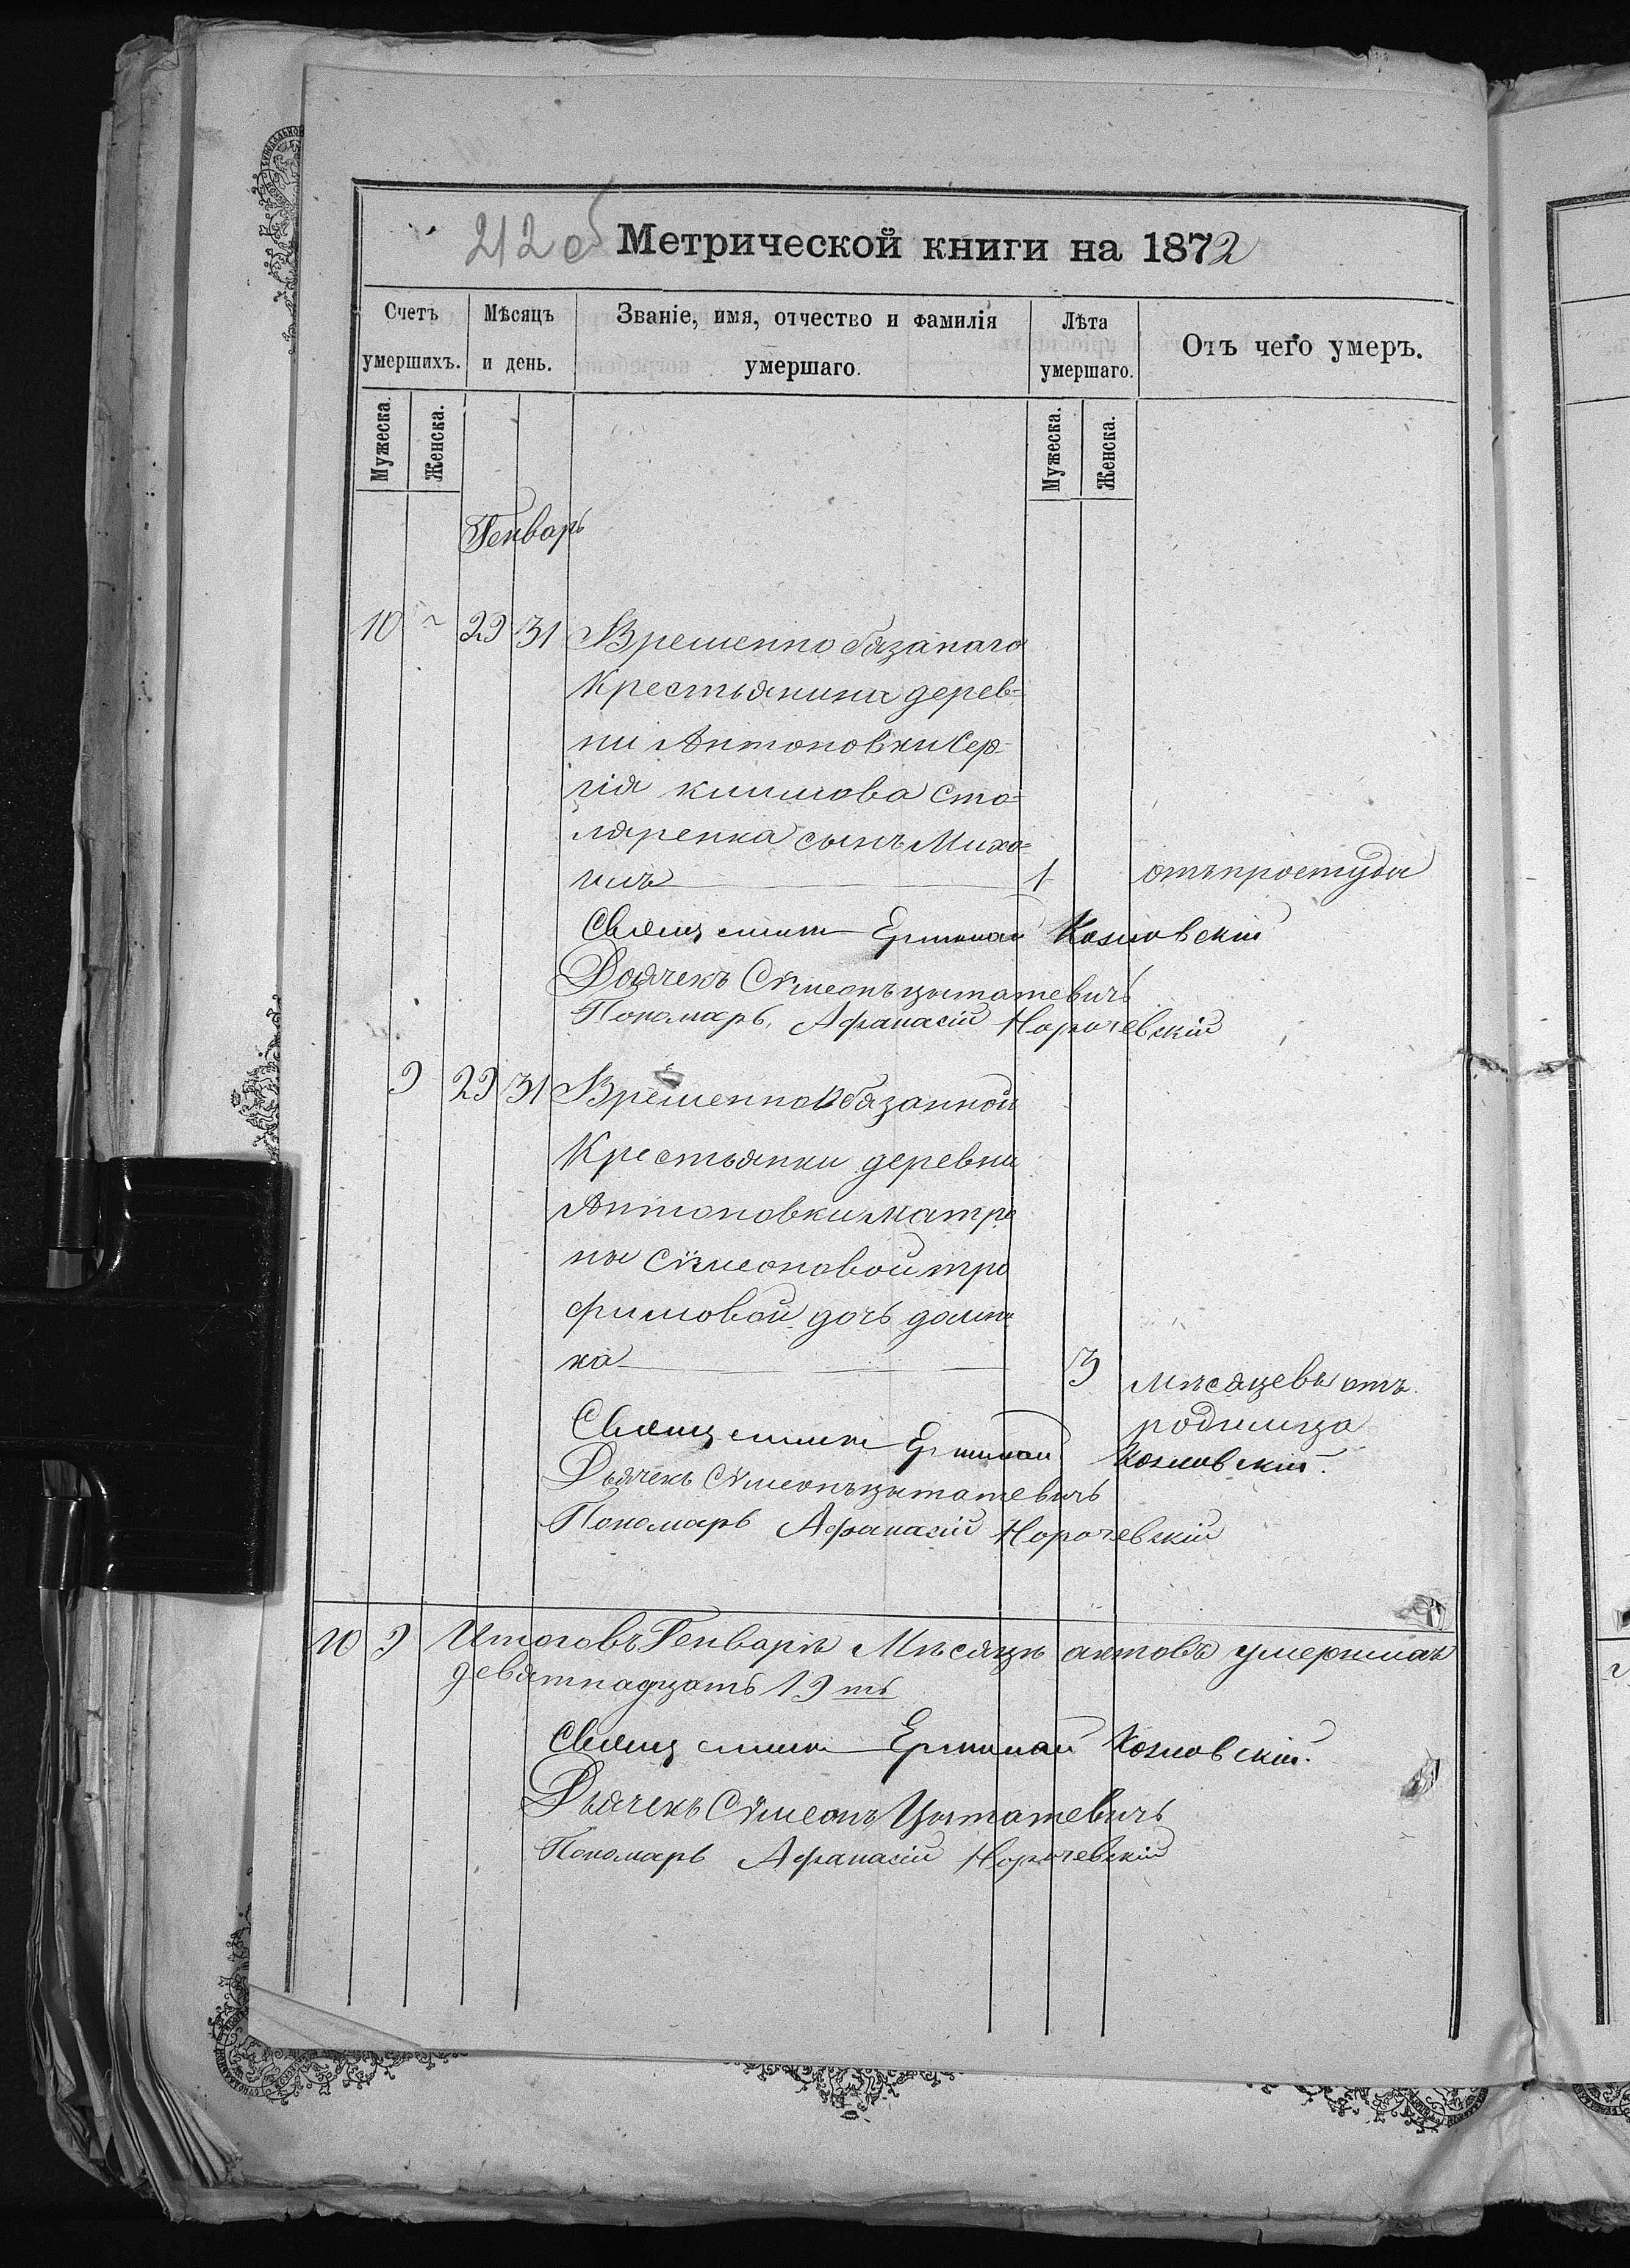 212 об Метрической книги на 1872
Счетъ умершихъ. Мѣсяцъ и день. Званіе, имя, отчество и фамилія умершаго. Лѣта умершаго. Отъ чего умеръ.
Мужеска. Женска. Мужеска. Женска.
Генварь
10 29 31 Временнобязанаго
Крестьянина дерев=
ни Антоновки Сер=
гія Климова Сто=
ляренка сынъ Миха=
илъ 1 отъ простуды
Священникъ Ермолай Козловскій
Дьячекъ Сѵмеонъ Цытатевичъ
Пономарь Афанасій Норочевскій
9 29 31 Временно Обязанной
Крестьянки деревни
Антоновки Матро
ны Сѵмеоновой Тро
фимовой дочь Домни
ка 3 мѣсяцевъ отъ
родимца
Священникъ Ермолай Козловскій.
Дьячекъ Сѵмеонъ Цытатевичъ
Пономарь Афанасій Норочевскій
10 9 Итого въ Генварѣ Мѣсяцѣ актовъ умершихъ
девятнадцать 19ть
Священникъ Ермолай Козловскій.
Дьячекъ Сѵмеонъ Цытатевичъ
Пономарь Афанасій Норочевскій